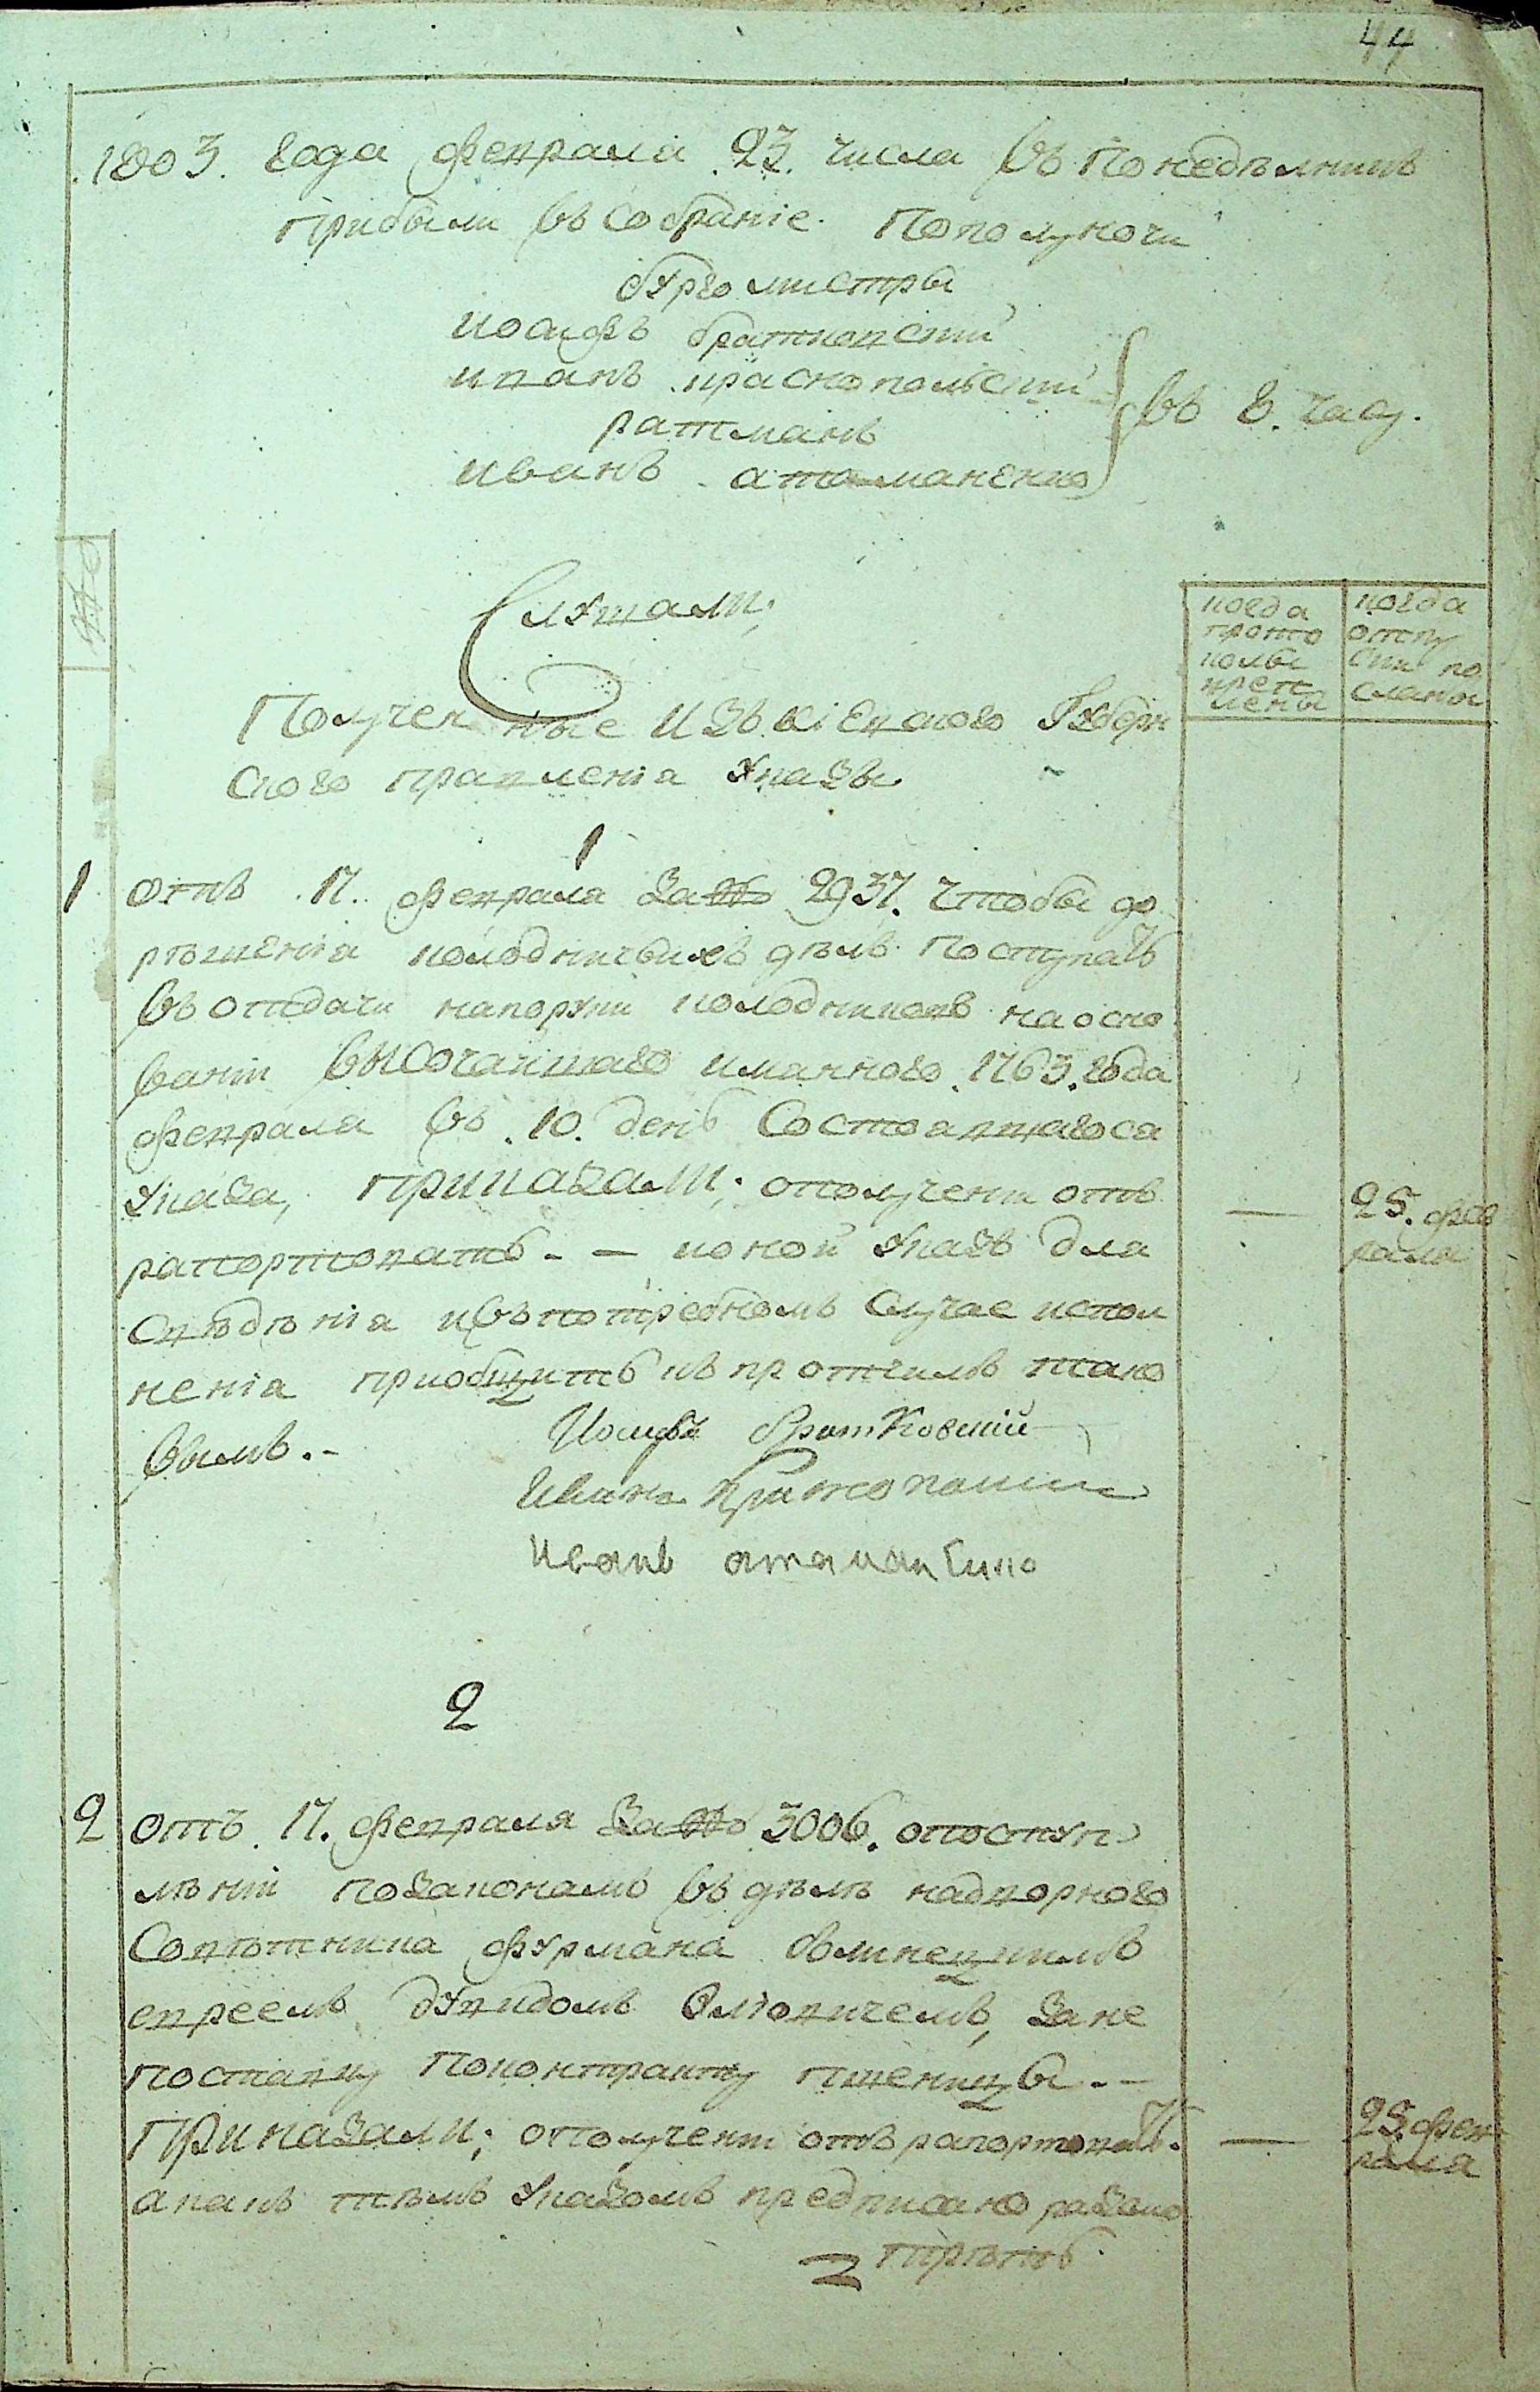 44
1803. года февраля 23. числа въ Понеделникъ
Прибыли въ Собраніе. Пополуночи
бургомистры
иосифъ братковский
иванъ краснопольский
ратманъ
иванъ атаманенко
въ 8. часу.
№
Слушали;
когда
прото
колы
креп
лены
когда
отпу
ски по
сланы
Полученные изъ кіевского Губерн
ского правленіа указы
1
1 отъ 17. февраля за№ 2937. чтобы до
решеніа колодничьихъ делъ Поступать
въ отдачи напоруки колодниковъ на осно
ваніи высочайшаго имянного 1763. года
февраля въ 10. день Состоявшагося
указа, Приказали; ополучени отъ
рапортовать. — ионой указъ для
Сведеніа ивъ потребномъ Случае испол
неніа приобщить къ протчимъ тако
вымъ. -
— 25. фев
раля
Иосифъ Братковский
Иванъ Краснополский
Иванъ атаманенко
2
2 отъ 17. февраля за№ 3006. опоступ
леніи позаконамъ въ деле надворного
Советника фурмана Овинецкимъ
евреемъ дувидомъ Сможичемъ, за не
поставку Поконтракту пшеницы. —
Приказали; ополучении отъ рапортовать.
акакъ темъ указомъ предписано разсмо
треть
— 25. фев
раля